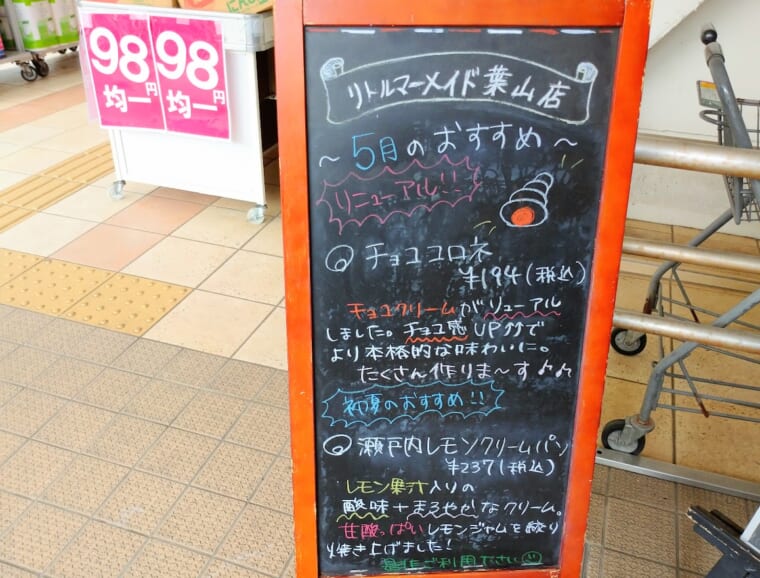 98円
均一
98円
均一
リトルマーメイド葉山店
～5月のおすすめ～
リニューアル!!
チョココロネ
¥194(税込)
チョコクリームがリューアル
しました。チョコ感UP⇈で
より本格的な味わいに。
たくさん作りま～す♪♪
初夏のおすすめ!!
瀬戸内レモンクリームパン
¥237(税込)
レモン果汁入りの
酸味+まろやかなクリーム。
甘酸っぱいレモンジャムを絞り
焼き上げました!
ご利用ださい